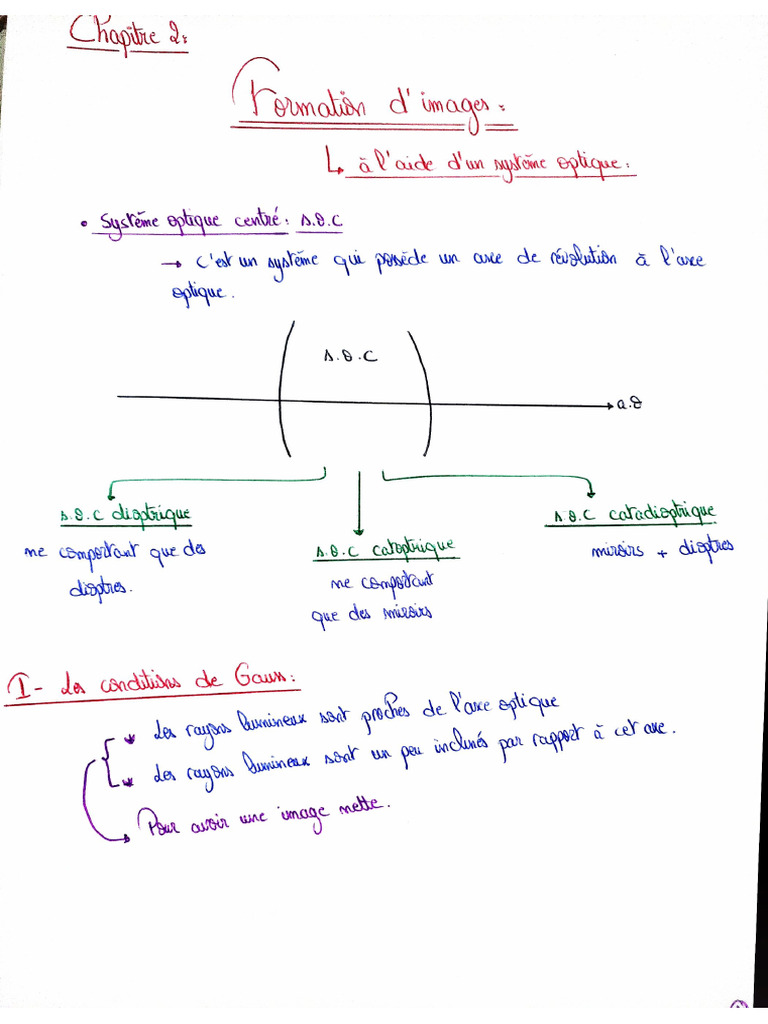 Chapître 2:
Formation d'images:
↳ à l'aide d'un système optique:
• Système optique centré: S.O.C
→ C'est un système qui possède un axe de révolution à l'axe
optique.
S.O.C
a.O
S.O.C dioptrique
ne comportant que des
dioptres.
S.O.C catoptrique
ne comportant
que des miroirs
S.O.C catadioptrique
miroirs + dioptres
I- Les conditions de Gauss:
Les rayons lumineux sont proches de l'axe optique
Les rayons lumineux sont un peu inclinés par rapport à cet axe.
Pour avoir une image nette.